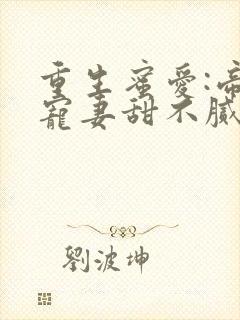 重生蜜愛:帝
寵妻甜不膩
劉波坤